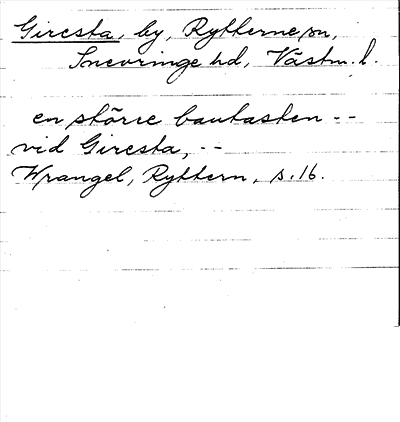 Giresta, by, Rytterne sn,
Snevringe hd, Västm. l.
en större bautasten --
vid Giresta, --
Wrangel, Ryttern, s. 16.